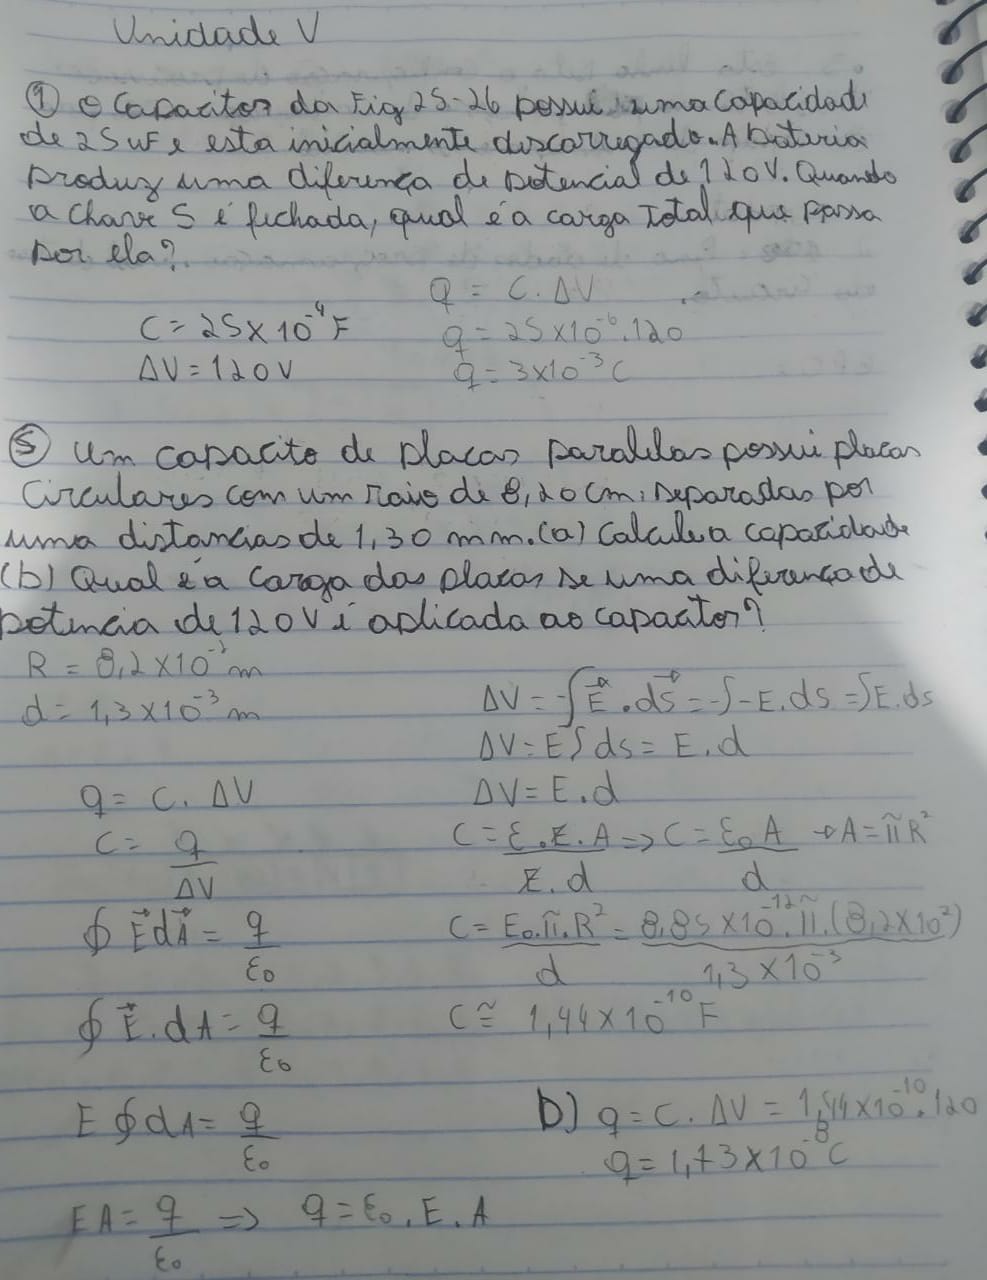 Unidade V
① O Capacitor da Fig 25-26 possui uma Capacidade
de 25 uF e esta inicialmente discarregado. A bateria
produz uma diferença de potencial de 120V. Quando
a chave S é fechada, qual é a carga total que passa
por ela?
q = C. ΔV
C = 25 x 10⁻⁴ F
q = 25x10⁻⁶.120
ΔV = 120V
q = 3x10⁻³ C
⑤ Um capacito de placas paralelas possui placas
Circulares com um raio de 8,20 cm, separadas por
uma distancias de 1,30 mm. (a) Calcule a capacidade
(b) Qual é a Carga das placas se uma diferença de
potencia de 120V é aplicada ao capacitor?
R = 8,2 x 10 m
d = 1,3 x 10⁻³ m
ΔV = -∫ E⃗ . ds⃗ = -∫ -E. ds = ∫E. ds
ΔV = E ∫ ds = E. d
q = C. ΔV
ΔV = E. d
C = q / ΔV
C = ε₀.E.A / E.d => C = ε₀ A / d → A = πR²
∮ E⃗ dA⃗ = q / ε₀
C = E₀.π.R² / d = 8,85 x 10⁻¹².π.(8,2x10²) / 1,3 x 10⁻³
∮ E⃗. dA = q / ε₀
C ≅ 1,44 x 10⁻¹⁰ F
E ∮ dA = q / ε₀
b) q = C. ΔV = 1,44x10⁻¹⁰.120
q = 1,73 x 10⁻⁸ C
EA = q / ε₀ => q = ε₀. E. A